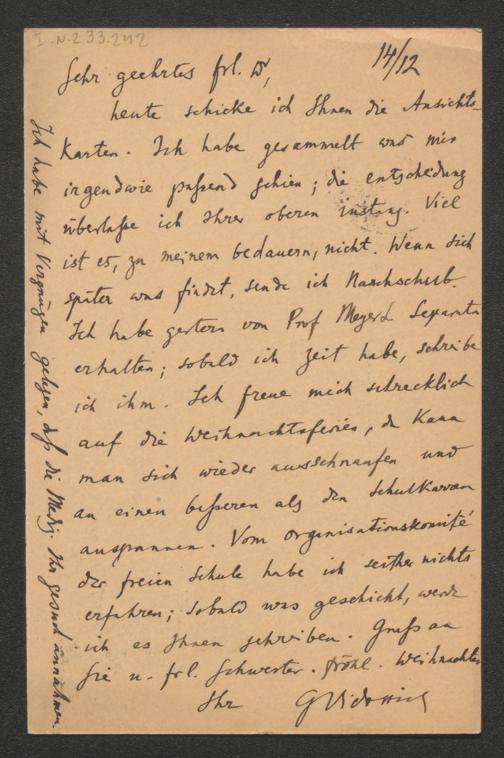 I.N.233.292
14/12
Sehr geehrtes frl. Dr,
heute schicke ich Ihnen die Ansichts-
karten. Ich habe gesammelt was mir
irgendwie paßend schien; die entscheidung
überlaße ich Ihrer oberen instanz. Viel
ist es, zu meinem bedauern, nicht. Wenn sich
später was findet, sende ich Nachschub.
Ich habe gestern von Prof Meyers Separata
erhalten; sobald ich zeit habe, schreibe
ich ihm. Ich freue mich schrecklich
auf die Weihnachtsferien, da kann
man sich wieder ausschnaufen und
an einen beßeren als den Schulkarren
anspannen. Vom organisationskomité
der freien Schule habe ich seither nichts
erfahren; sobald was geschieht, werde
ich es Ihnen schreiben. Gruß an
Sie u. frl. Schwester. Fröhl. Weihnachten
Ihr GVidossich
Ich habe mit Vergnügen gelesen, daß die Mediz. Ihr gesuch annahmen.